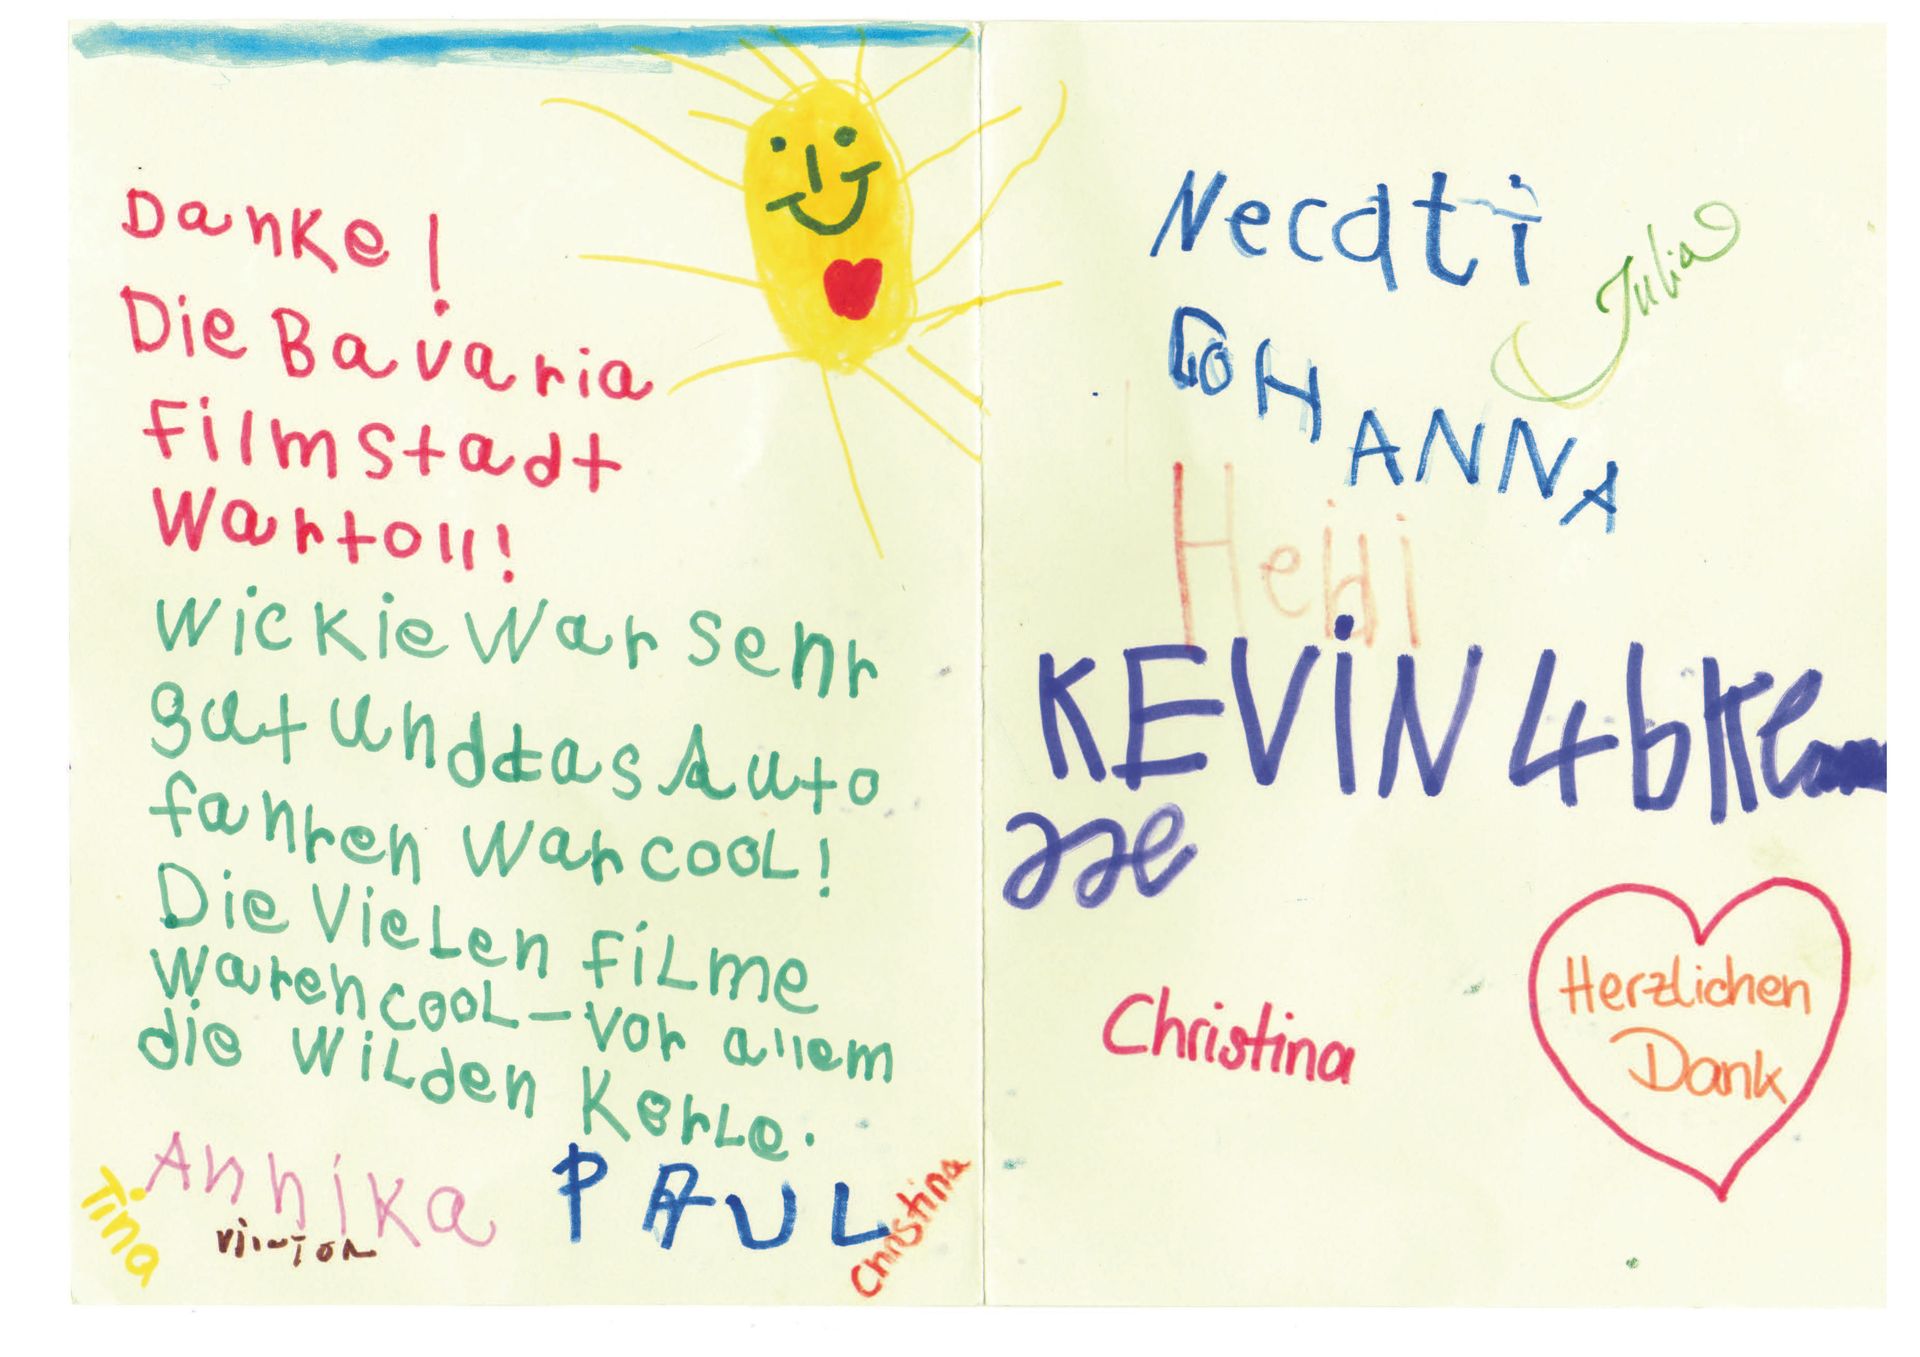 Danke!
Die Bavaria
Filmstadt
War toll!
Wickie War sehr
gut und das Auto
fahren War cool!
Die Vielen Filme
Waren cool - vor allem
die Wilden Kerle.
Annika
PAUL
Tina
Christina
Necati
Julia
JOHANNA
Heidi
KEViN 4b
Christina
Herzlichen
Dank